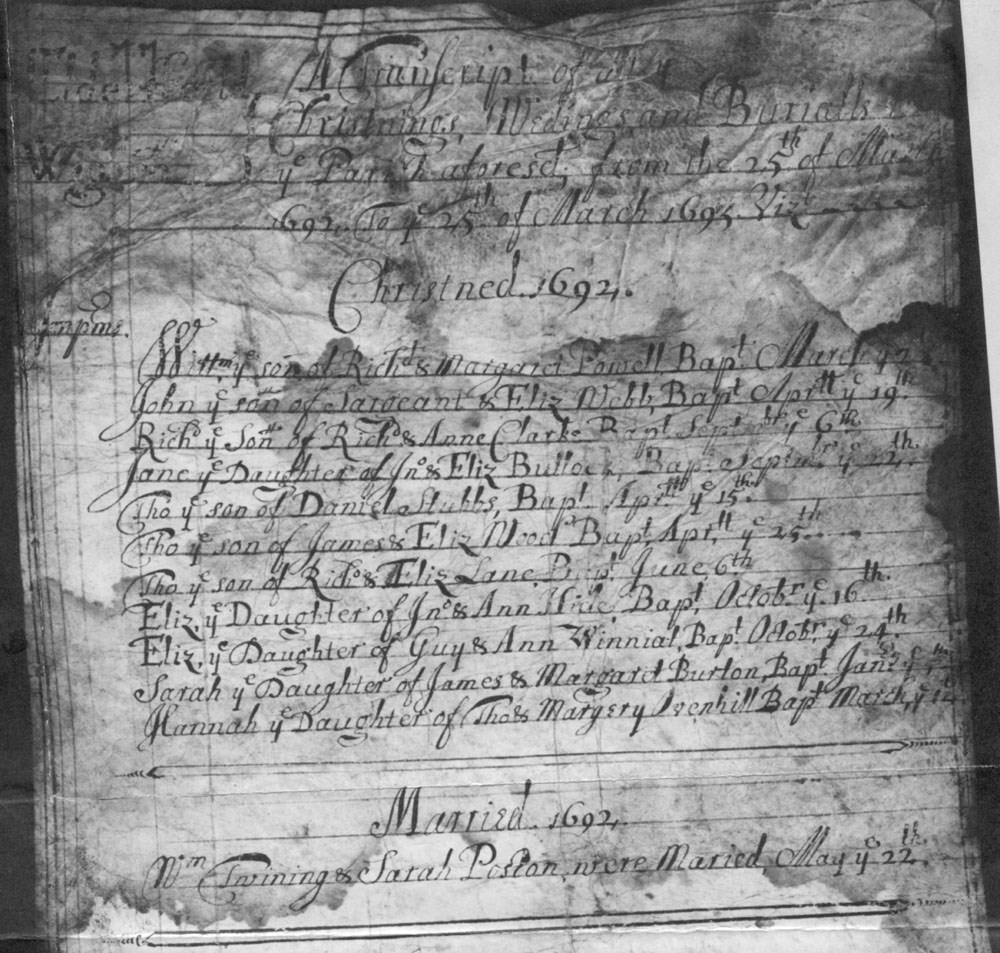 A Transcript of all yᵉ
Christnings, Wedings, and Burialls
yᵉ Parish aforesd, from the 25th of March
1692. To yᵉ 25th of March 1693. Vizt
Christned. 1692.
Impms.
Willm yᵉ son of Richd & Margaret Powell Bapt March yᵉ
John yᵉ son of Sargeant & Eliz Webb, Bapt Aprll yᵉ 19th.
Richd yᵉ Son of Richd & Anne Clarke Bapt Septembr yᵉ 6th.
Jane yᵉ Daughter of Jno & Eliz Bullock, Bapt Septmbr yᵉ 22th.
Tho yᵉ son of Daniel Stubbs, Bapt. Aprll yᵉ 15th.
Tho yᵉ son of James & Eliz Wood Bapt Aprll yᵉ 25th
Tho yᵉ son of Richd & Eliz Lane, Bapt June 6th
Eliz, yᵉ Daughter of Jno & Ann Bapt, Octobr yᵉ 16th.
Eliz, yᵉ Daughter of Guy & Ann Winnial, Bapt. Octobr yᵉ 24th.
Sarah yᵉ Daughter of James & Margaret Burton, Bapt Janr yᵉ
Hannah yᵉ Daughter of Tho & Margery Ovenhill Bapt March, yᵉ 12
Married. 1692
Wm Twining & Sarah Poston, were Maried, May yᵉ 22th.